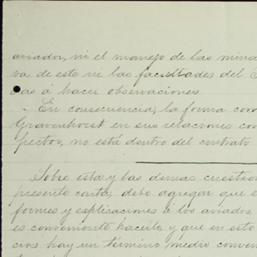 aviador, ni el manejo de las mina
va de este ni las facultades del I
cas á hacer observaciones.
- En consecuencia, la forma con
Gravenhorst en sus relaciones con
pector, no está dentro del contrato
Sobre esta y las demas cuestion
presente carta, debo agregar que e
formes y esplicaciones á los aviados
es conveniente hacerla y que en esto
cios hay un término medio conven